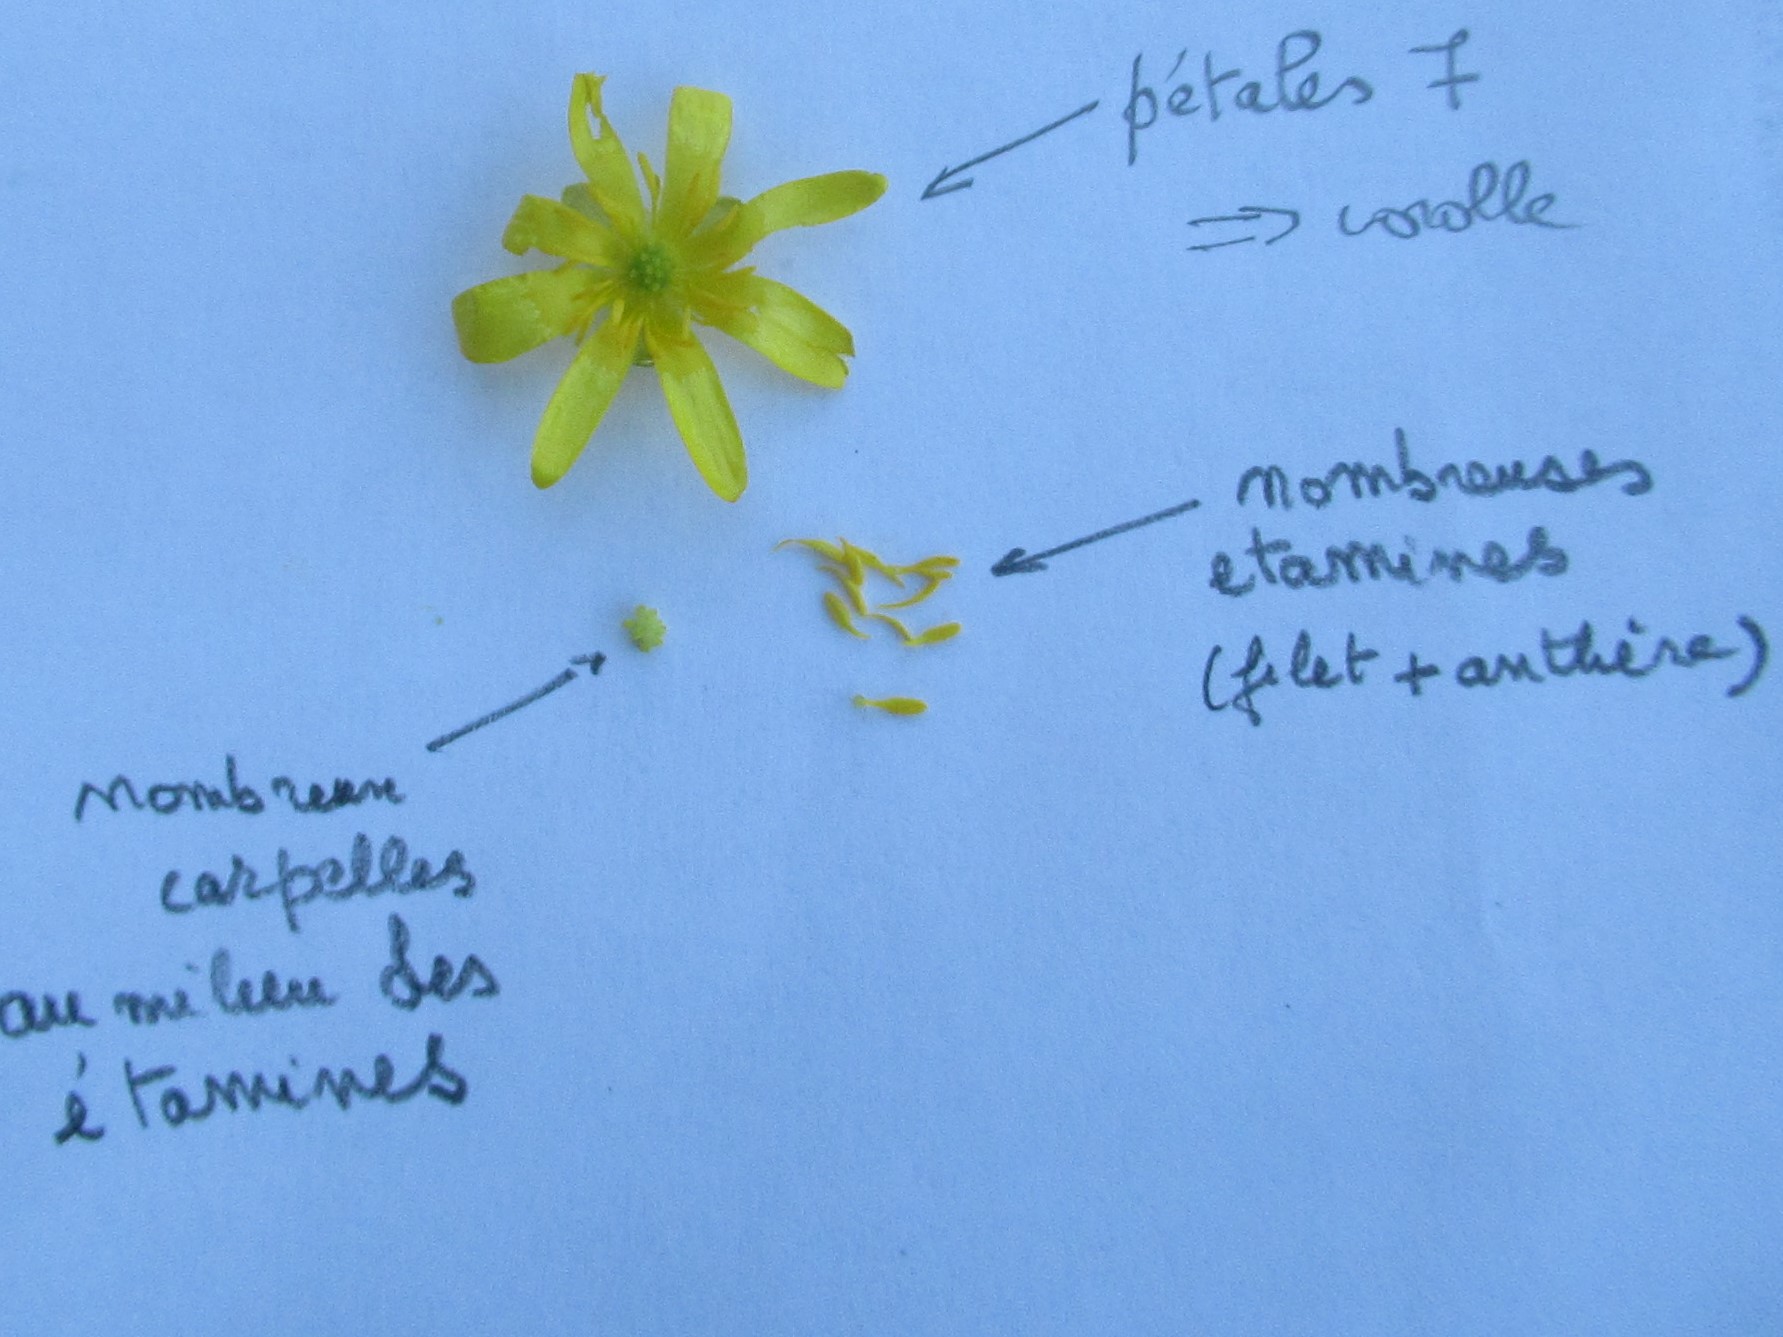 pétales 7
⇒ corolle
nombreuses
etamines
(filet + anthère)
nombreux
carpelles
au milieu des
étamines